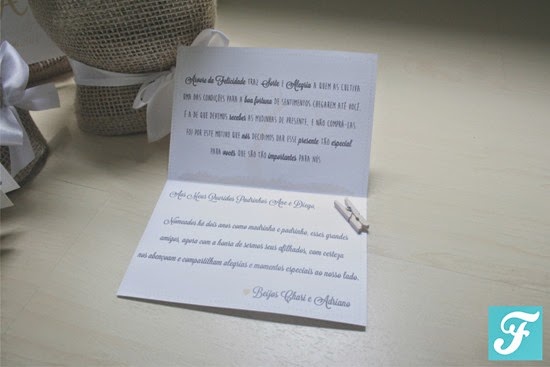 Árvore da Felicidade traz Sorte e Alegria a quem as cultiva
uma das condições para a boa fortuna de sentimentos chegarem até você,
é a de que devemos receber as mudinhas de presente, e não comprá-las
foi por este motivo que nós decidimos dar esse presente tão especial
para vocês que são tão importantes para nós
Aos Meus Queridos Padrinhos Ane e Diego,
Nomeados há dois anos como madrinha e padrinho, esses grandes
amigos, agora com a honra de sermos seus afilhados, com certeza
nos abençoam e compartilham alegrias e momentos especiais ao nosso lado.
Beijos Chari e Adriano
F